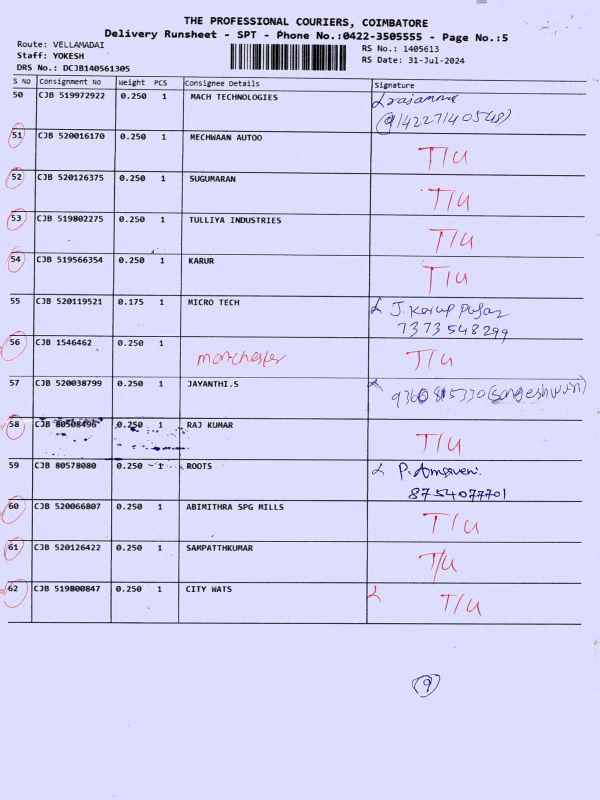 THE PROFESSIONAL COURIERS, COIMBATORE
Delivery Runsheet - SPT - Phone No.:0422-3505555 - Page No.:5
Route: VELLAMADAI
Staff: YOKESH
DRS No.: DCJB140561305
RS No.: 1405613
RS Date: 31-Jul-2024
S No Consignment No Weight PCS Consignee Details Signature
50 CJB 519972922 0.250 1 MACH TECHNOLOGIES
51 CJB 520016170 0.250 1 MECHWAAN AUTOO T/U
52 CJB 520126375 0.250 1 SUGUMARAN T/U
53 CJB 519802275 0.250 1 TULLIYA INDUSTRIES T/U
54 CJB 519566354 0.250 1 KARUR T/U
55 CJB 520119521 0.175 1 MICRO TECH J.
7373548299
56 CJB 1546462 0.250 1 manchester T/U
57 CJB 520038799 0.250 1 JAYANTHI.S
58 CJB 80508496 0.250 1 RAJ KUMAR T/U
59 CJB 80578080 0.250 1 ROOTS P.
8754077701
60 CJB 520066807 0.250 1 ABIMITHRA SPG MILLS T/U
61 CJB 520126422 0.250 1 SAMPATTHKUMAR T/U
62 CJB 519800847 0.250 1 CITY WATS T/U
9